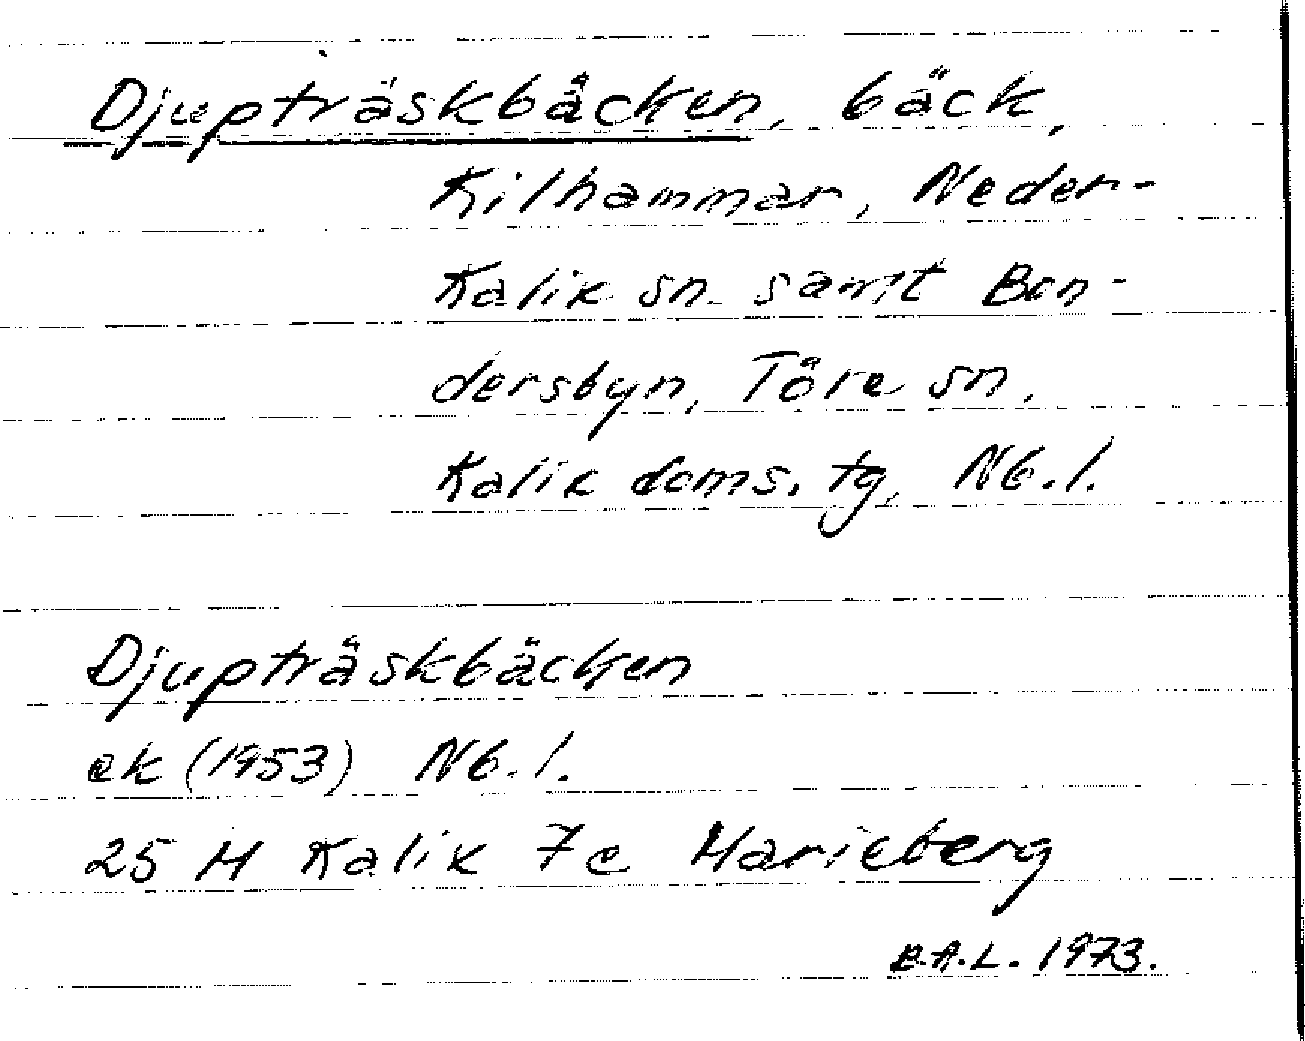 Djupträskbäcken, bäck,
Kilhammar, Neder-
Kalix sn samt Bon-
dersbyn, Töre sn,
Kalix doms. tg, Nb. l.
Djupträskbäcken
ek (1953) Nb. l.
25 M Kalix 7c Marieberg
B.A.L. 1973.